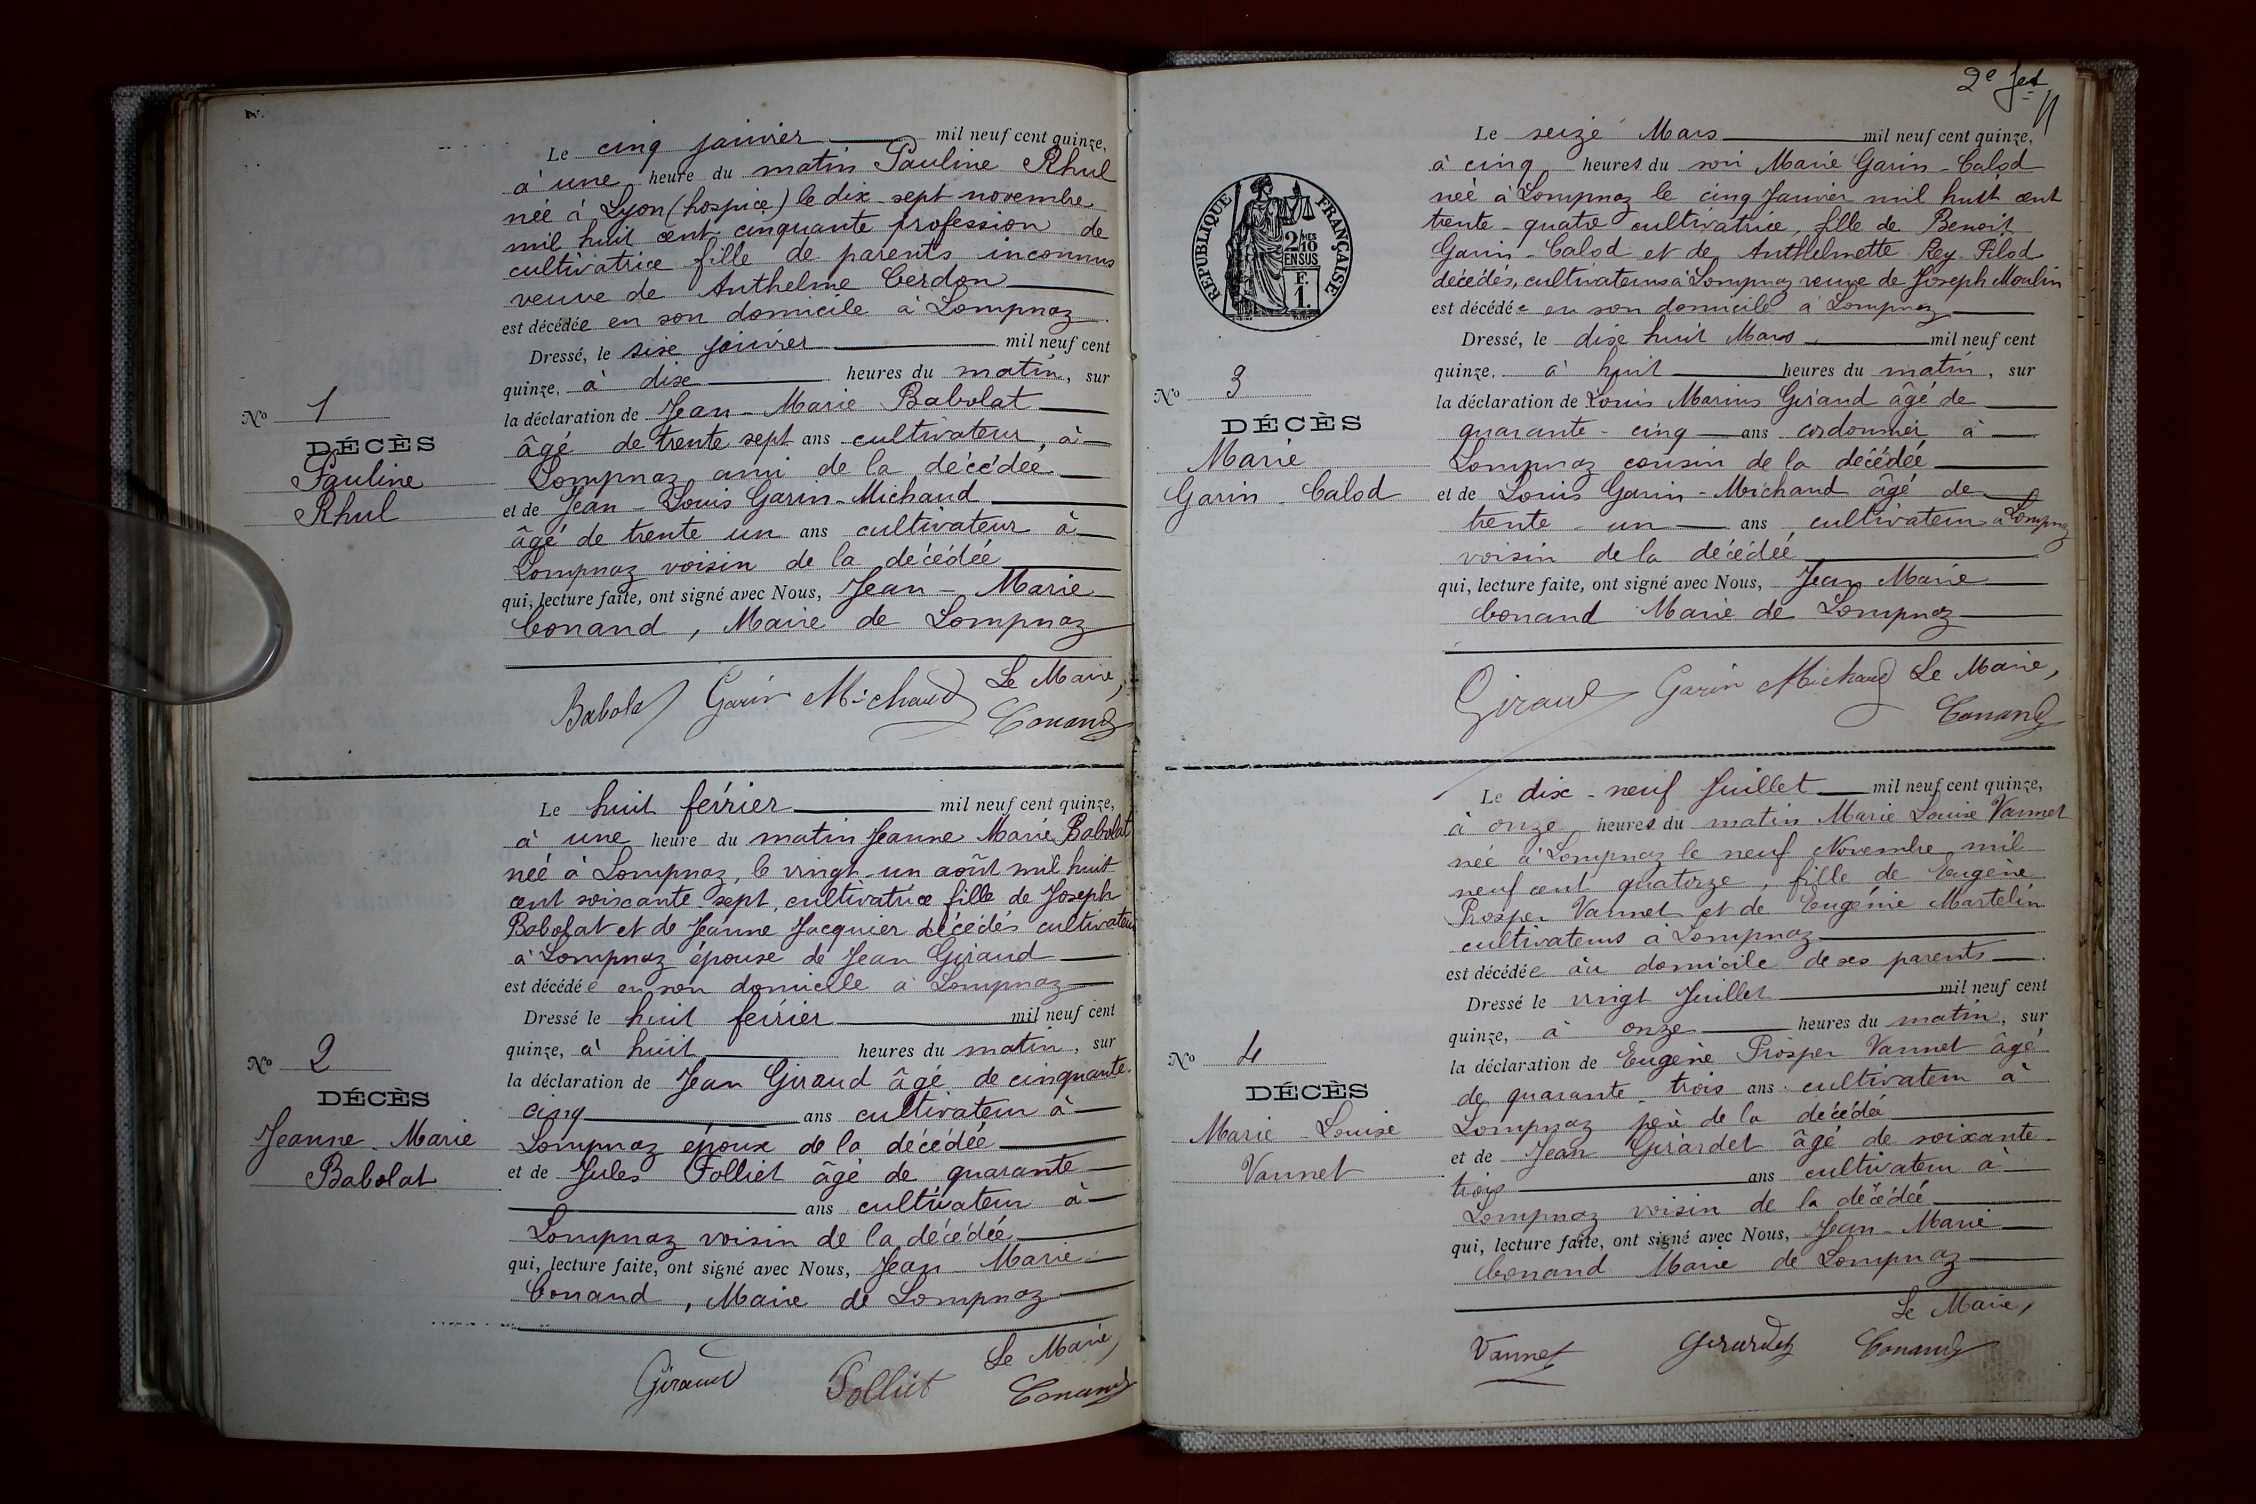 Le cinq janvier mil neuf cent quinze,
à une heure du matin Pauline Rhul
née à Lyon (hospice) le dix-sept novembre
mil huit cent cinquante profession de
cultivatrice fille de parents inconnus
veuve de Anthelme Cerdon
est décédée en son domicile à Lompnaz
Dressé, le six janvier mil neuf cent
quinze, à dix heures du matin, sur
la déclaration de Jean-Marie Babolat
âgé de trente sept ans cultivateur à
Lompnaz ami de la décédée
et de Jean-Louis Garin-Michaud
âgé de trente un ans cultivateur à
Lompnaz voisin de la décédée
qui, lecture faite, ont signé avec Nous, Jean-Marie
Conand, Maire de Lompnaz
Le Maire,
Babolat Garin Michaud Conand
No 1
DÉCÈS
Pauline
Rhul
Le huit février mil neuf cent quinze,
à une heure du matin Jeanne Marie Babolat
née à Lompnaz, le vingt-un août mil huit
cent soixante-sept, cultivatrice fille de Joseph
Babolat et de Jeanne Jacquier décédés cultivateurs
à Lompnaz épouse de Jean Giraud
est décédée en son domicile à Lompnaz
Dressé le huit février mil neuf cent
quinze, à huit heures du matin, sur
la déclaration de Jean Giraud âgé de cinquante-
cinq ans cultivateur à
Lompnaz époux de la décédée
et de Jules Folliet âgé de quarante
ans cultivateur à
Lompnaz voisin de la décédée
qui, lecture faite, ont signé avec Nous, Jean-Marie
Conand, Maire de Lompnaz
Le Maire,
Giraud Folliet Conand
No 2
DÉCÈS
Jeanne Marie
Babolat
2e fet
RÉPUBLIQUE FRANÇAISE
2/10
EN SUS
F.
1.
Le seize Mars mil neuf cent quinze,
à cinq heures du soir Marie Garin-Calod
née à Lompnaz le cinq Janvier mil huit cent
trente-quatre cultivatrice, fille de Benoit
Garin-Calod et de Anthelmette Rey-Pilod
décédés, cultivateurs à Lompnaz veuve de Joseph Moulin
est décédée en son domicile à Lompnaz
Dressé, le dix huit Mars mil neuf cent
quinze, à huit heures du matin, sur
la déclaration de Louis Marius Giraud âgé de
quarante-cinq ans cordonnier à
Lompnaz cousin de la décédée
et de Louis Garin-Michaud âgé de
trente-un ans cultivateur à Lompnaz
voisin de la décédée
qui, lecture faite, ont signé avec Nous, Jean Marie
Conand Maire de Lompnaz
Giraud Garin Michaud Le Maire,
Conand
No 3
DÉCÈS
Marie
Garin-Calod
Le dix-neuf Juillet mil neuf cent quinze,
à onze heures du matin Marie Louise Vannet
née à Lompnaz le neuf Novembre mil
neuf cent quatorze, fille de Eugène
Prosper Vannet et de Eugénie Martelin
cultivateurs à Lompnaz
est décédée au domicile de ses parents
Dressé le vingt Juillet mil neuf cent
quinze, à onze heures du matin, sur
la déclaration de Eugène Prosper Vannet âgé
de quarante-trois ans cultivateur à
Lompnaz père de la décédée
et de Jean Girardet âgé de soixante-
trois ans cultivateur à
Lompnaz voisin de la décédée
qui, lecture faite, ont signé avec Nous, Jean-Marie
Conand Maire de Lompnaz
Le Maire,
Vannet Girardet Conand
No 4
DÉCÈS
Marie-Louise
Vannet